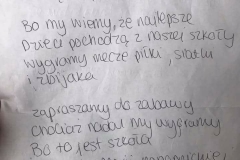 Bo my wiemy, że najlepsze
Dzieci pochodzą z naszej szkoły
wygramy mecze piłki, siatki
i zbijaka
zapraszamy do zabawy
chociaż nadal my wygramy
Bo to jest szkoła